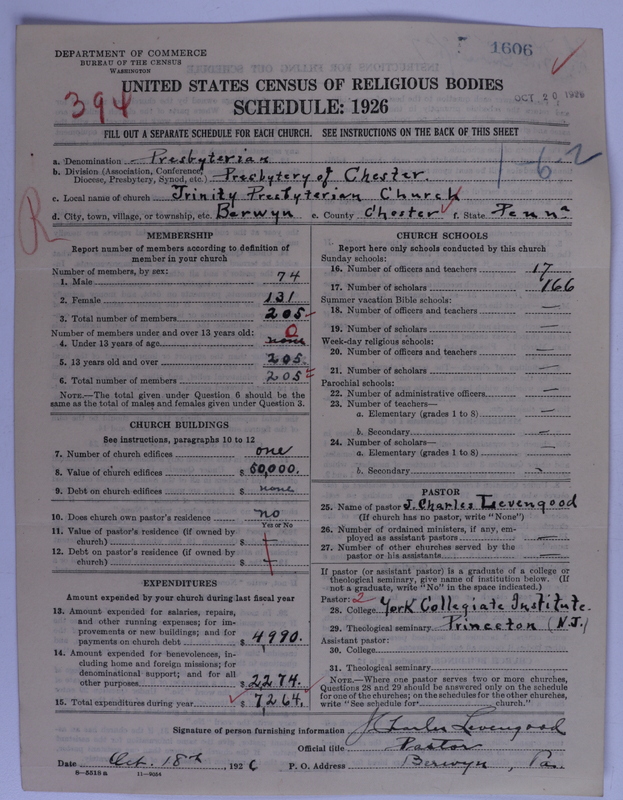 1606
DEPARTMENT OF COMMERCE
BUREAU OF THE CENSUS
WASHINGTON
394
UNITED STATES CENSUS OF RELIGIOUS BODIES
OCT 20 1926
SCHEDULE: 1926
FILL OUT A SEPARATE SCHEDULE FOR EACH CHURCH. SEE INSTRUCTIONS ON THE BACK OF THIS SHEET
a. Denomination Presbyterian
1-62
b. Division (Association, Conference, Diocese, Presbytery, Synod, etc.) Presbytery of Chester.
c. Local name of church Trinity Presbyterian Church
d. City, town, village, or township, etc. Berwyn e. County Chester f. State Penna
R
MEMBERSHIP
Report number of members according to definition of
member in your church
Number of members, by sex:
1. Male 74
2. Female 131
3. Total number of members 205
Number of members under and over 13 years old:
0
4. Under 13 years of age none
5. 13 years old and over 205.
6. Total number of members 205
NOTE.—The total given under Question 6 should be
the same as the total of males and females given under Question 3.
CHURCH BUILDINGS
See instructions, paragraphs 10 to 12
7. Number of church edifices one
8. Value of church edifices $ 60,000.
9. Debt on church edifices $ none
10. Does church own pastor's residence no
Yes or No
11. Value of pastor's residence (if owned by
church) $ —
12. Debt on pastor's residence (if owned by
church) $ —
EXPENDITURES
Amount expended by your church during last fiscal year
13. Amount expended for salaries, repairs,
and other running expenses; for im-
provements or new buildings; and for
payments on church debt $ 4990.
14. Amount expended for benevolences, in-
cluding home and foreign missions; for
denominational support; and for all
other purposes $ 2274.
15. Total expenditures during year $ 7264.
CHURCH SCHOOLS
Report here only schools conducted by this church
Sunday schools:
16. Number of officers and teachers 17
17. Number of scholars 166
Summer vacation Bible schools:
18. Number of officers and teachers —
19. Number of scholars —
Week-day religious schools:
20. Number of officers and teachers —
21. Number of scholars —
Parochial schools:
22. Number of administrative officers —
23. Number of teachers—
a. Elementary (grades 1 to 8) —
b. Secondary —
24. Number of scholars—
a. Elementary (grades 1 to 8) —
b. Secondary
PASTOR
25. Name of pastor J. Charles Levengood
(If church has no pastor, write "None")
26. Number of ordained ministers, if any, em-
ployed as assistant pastors —
27. Number of other churches served by the
pastor or his assistants —
If pastor (or assistant pastor) is a graduate of a college or
theological seminary, give name of institution below. (If
not a graduate, write "No" in the space indicated.)
Pastor: 2
28. College York Collegiate Institute.
29. Theological seminary Princeton (N.J.)
Assistant pastor:
30. College
31. Theological seminary
NOTE.—Where one pastor serves two or more churches,
Questions 28 and 29 should be answered only on the schedule
for one of the churches; on the schedules for the other churches,
write "See schedule for church."
Signature of person furnishing information J Charles Levengood
Official title Pastor
Date Oct. 18th, 1926 P. O. Address Berwyn, Pa.
8—5518 a 11—9054